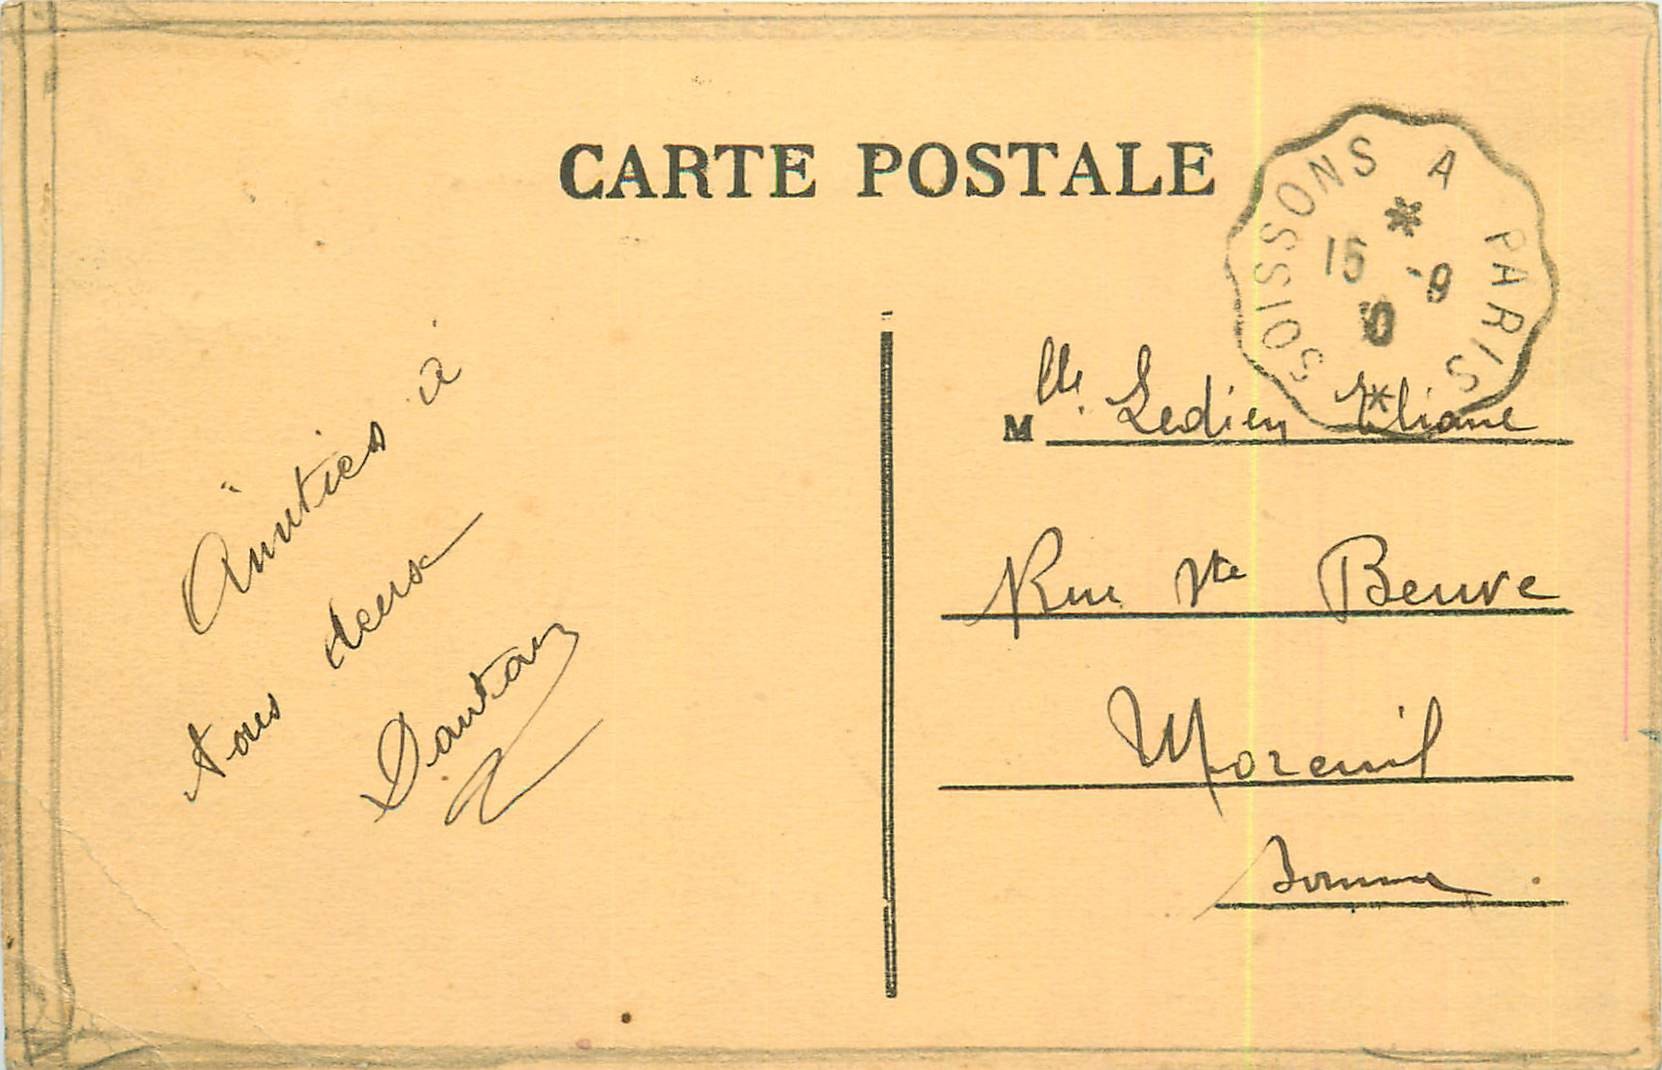 CARTE POSTALE
SOISSONS A PARIS
15 -9
Amitiés à
tous deux
Mlle. Ledien Eliane
Rue Ste Beuve
Moreuil
Somme